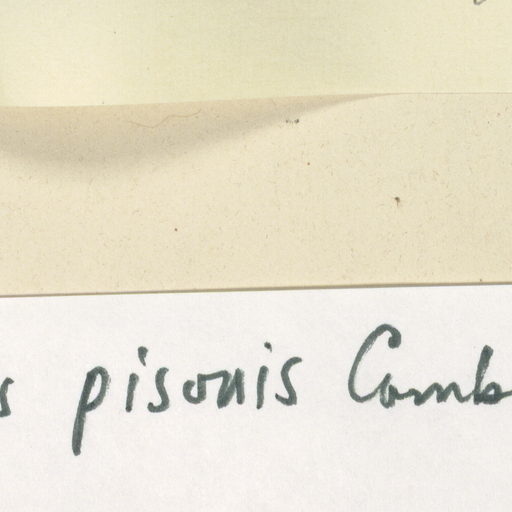 s pisonis Camb